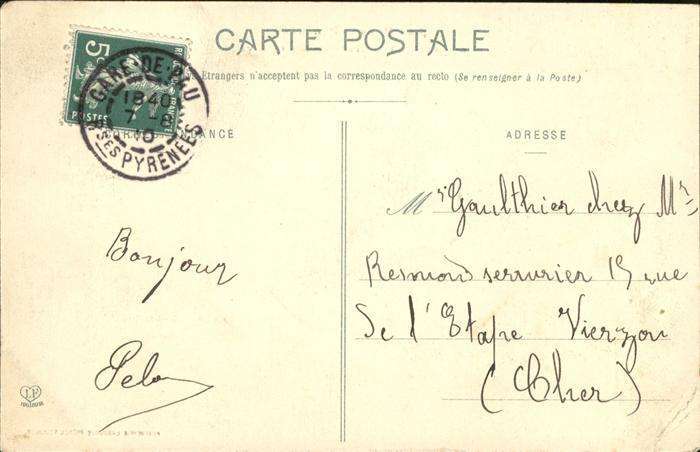 CARTE POSTALE
Etrangers n'acceptent pas la correspondance au recto (Se renseigner à la Poste)
5c
POSTES
GARE-DE-PAU
1840
7-8
10
Bses PYRENEES
ADRESSE
Bonjour
Mr Gaulthier chez Mr
serrurier 15 rue
de l'Etape Vierzon
(Cher)
LF
TOULOUSE